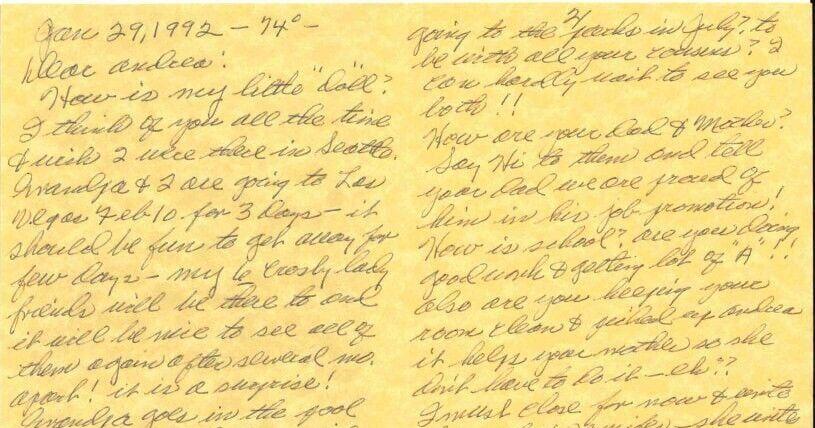 Jan 29, 1992 – 74° –
Dear Andrea:
How is my little "Doll"?
I think of you all the time
& wish I were there in Seattle.
Grandpa & I are going to Las
Vegas Feb 10 for 3 days – it
should be fun to get away for
few days – my Crosby lady
friends will be there to and
it will be nice to see all of
them again after several mo.
apart! it is a surprise!
Grandpa goes in the pool
going to the Parks in July? to
be with all your cousins? I
can hardly wait to see you
both!!
How are your Dad & Mother?
Say Hi to them and tell
your Dad we are proud of
him in his job promotion!
How is school? are you doing
good work & getting lot of "A"!!
also are you keeping your
room clean & picked up Andrea
it helps your mother so she
don't have to do it – eh??
I must close for now & write
she write